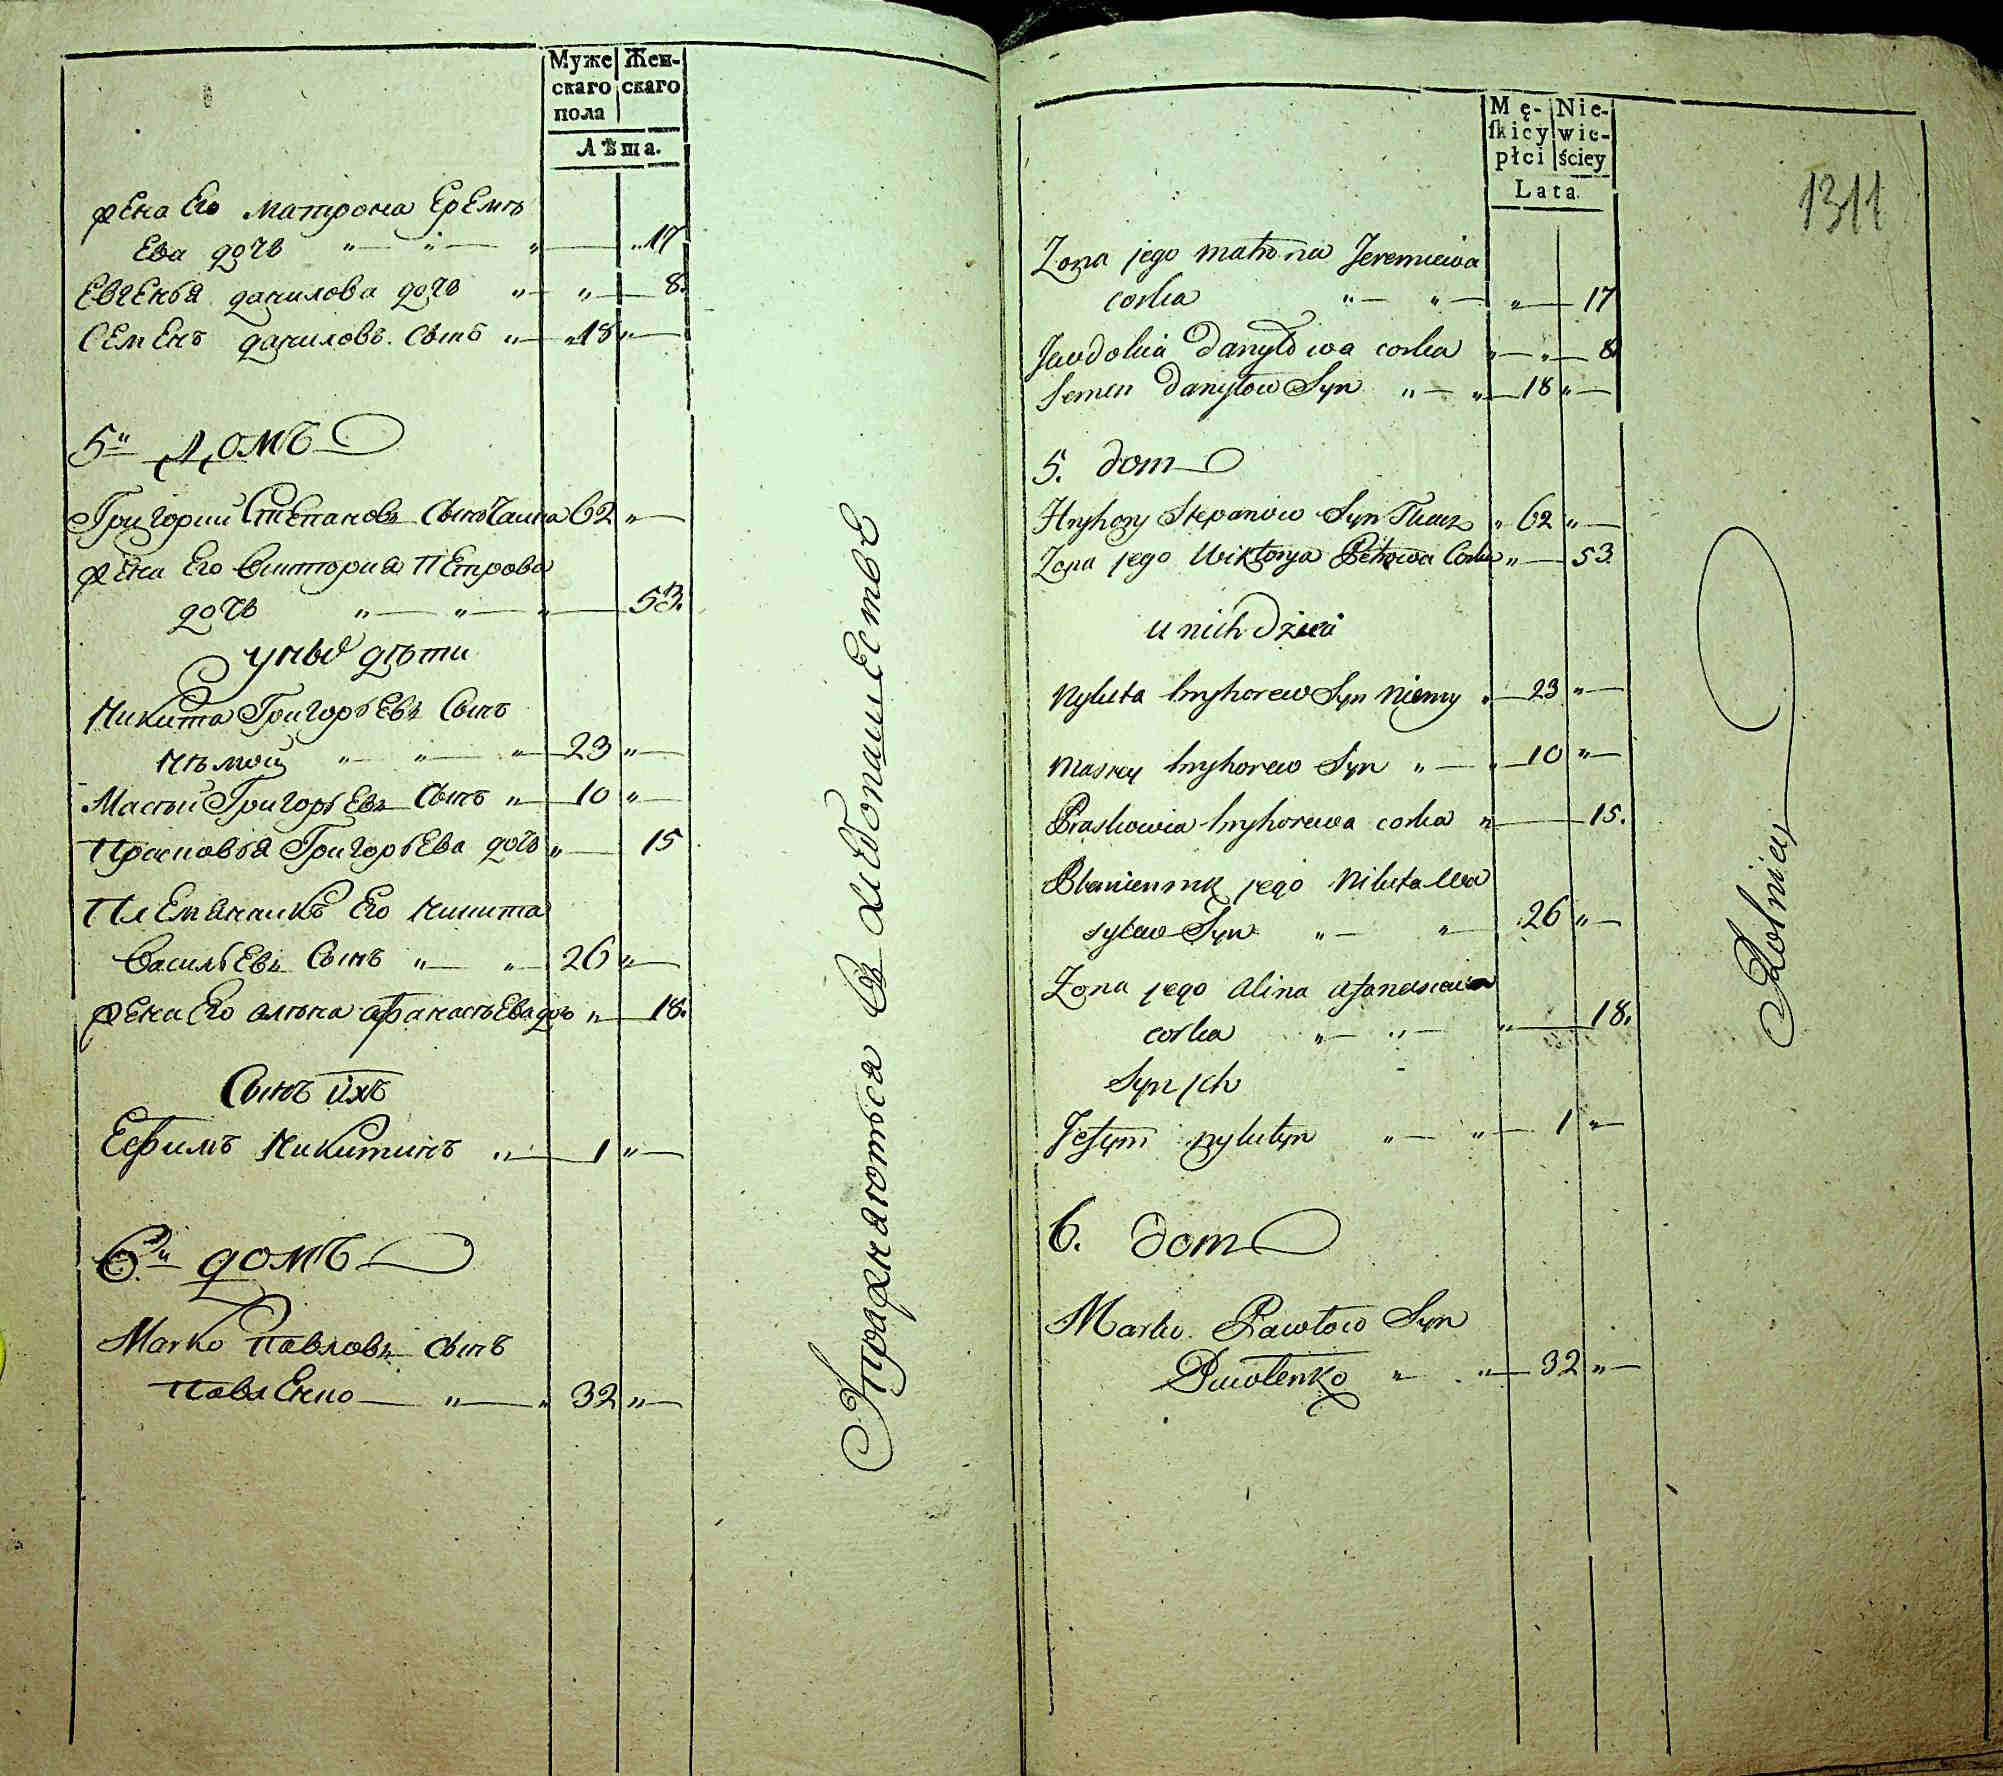 Муже Жен-
скаго скаго
пола
Лѣта.
жена Его матрона Еремѣ
Ева дочь " " " 17
Евгенья данилова дочь " " 8.
Семенъ даниловъ сынъ " 18 "
5й Домъ
Григорий Степановъ сынъ 62 "
жена Его Виктория Петрова
дочь " " " 53.
у ныхъ дѣти
Никита Григорьевъ Сынъ
нѣмой " " " 23 "
Масѣй Григорьевъ Сынъ " 10 "
Прасковья Григорьева дочь " 15
Племянникъ Его Никита
Васильевъ Сынъ " " 26 "
жена Его алѣна афанасьева до " 18.
Сынъ ихъ
Ефимъ Никитинъ " 1 "
6й домъ
Марко Павловъ сынъ
Павленко " " 32 "
Упражняютьса въ хлѣбопашествѣ
1311
Mę- Nie-
ſkiey wie-
płci ściey
Lata.
Zona jego matrona Jeremiewa
corka " " " 17
Jewdokia Danyłowa corka " " 8
Semen Danyłow Syn " " 18 "
5. dom
Hryhory Stepanow Syn Tkacz " 62 "
Zona jego Wiktorya Petrowa Corka " 53.
u nich Dzieci
Nykita hryhorew Syn Niemy " 23 "
Masiey hryhorew Syn " " 10 "
Praskowia hryhorewa corka " 15.
Plemiennik jego Nikita Wa
sylew Syn " " 26 "
Zona jego Alina afanasiewa
corka " " " 18.
Syn jch
Jefym nykityn " " 1 "
6. dom
Marko Pawłow Syn
Pawlenko " " 32 "
Rolnicy